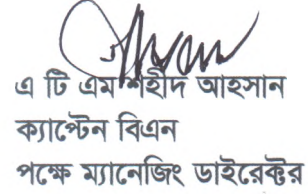 এ টি এম শহীদ আহসান
ক্যাপ্টেন বিএন
পক্ষে ম্যানেজিং ডাইরেক্টর